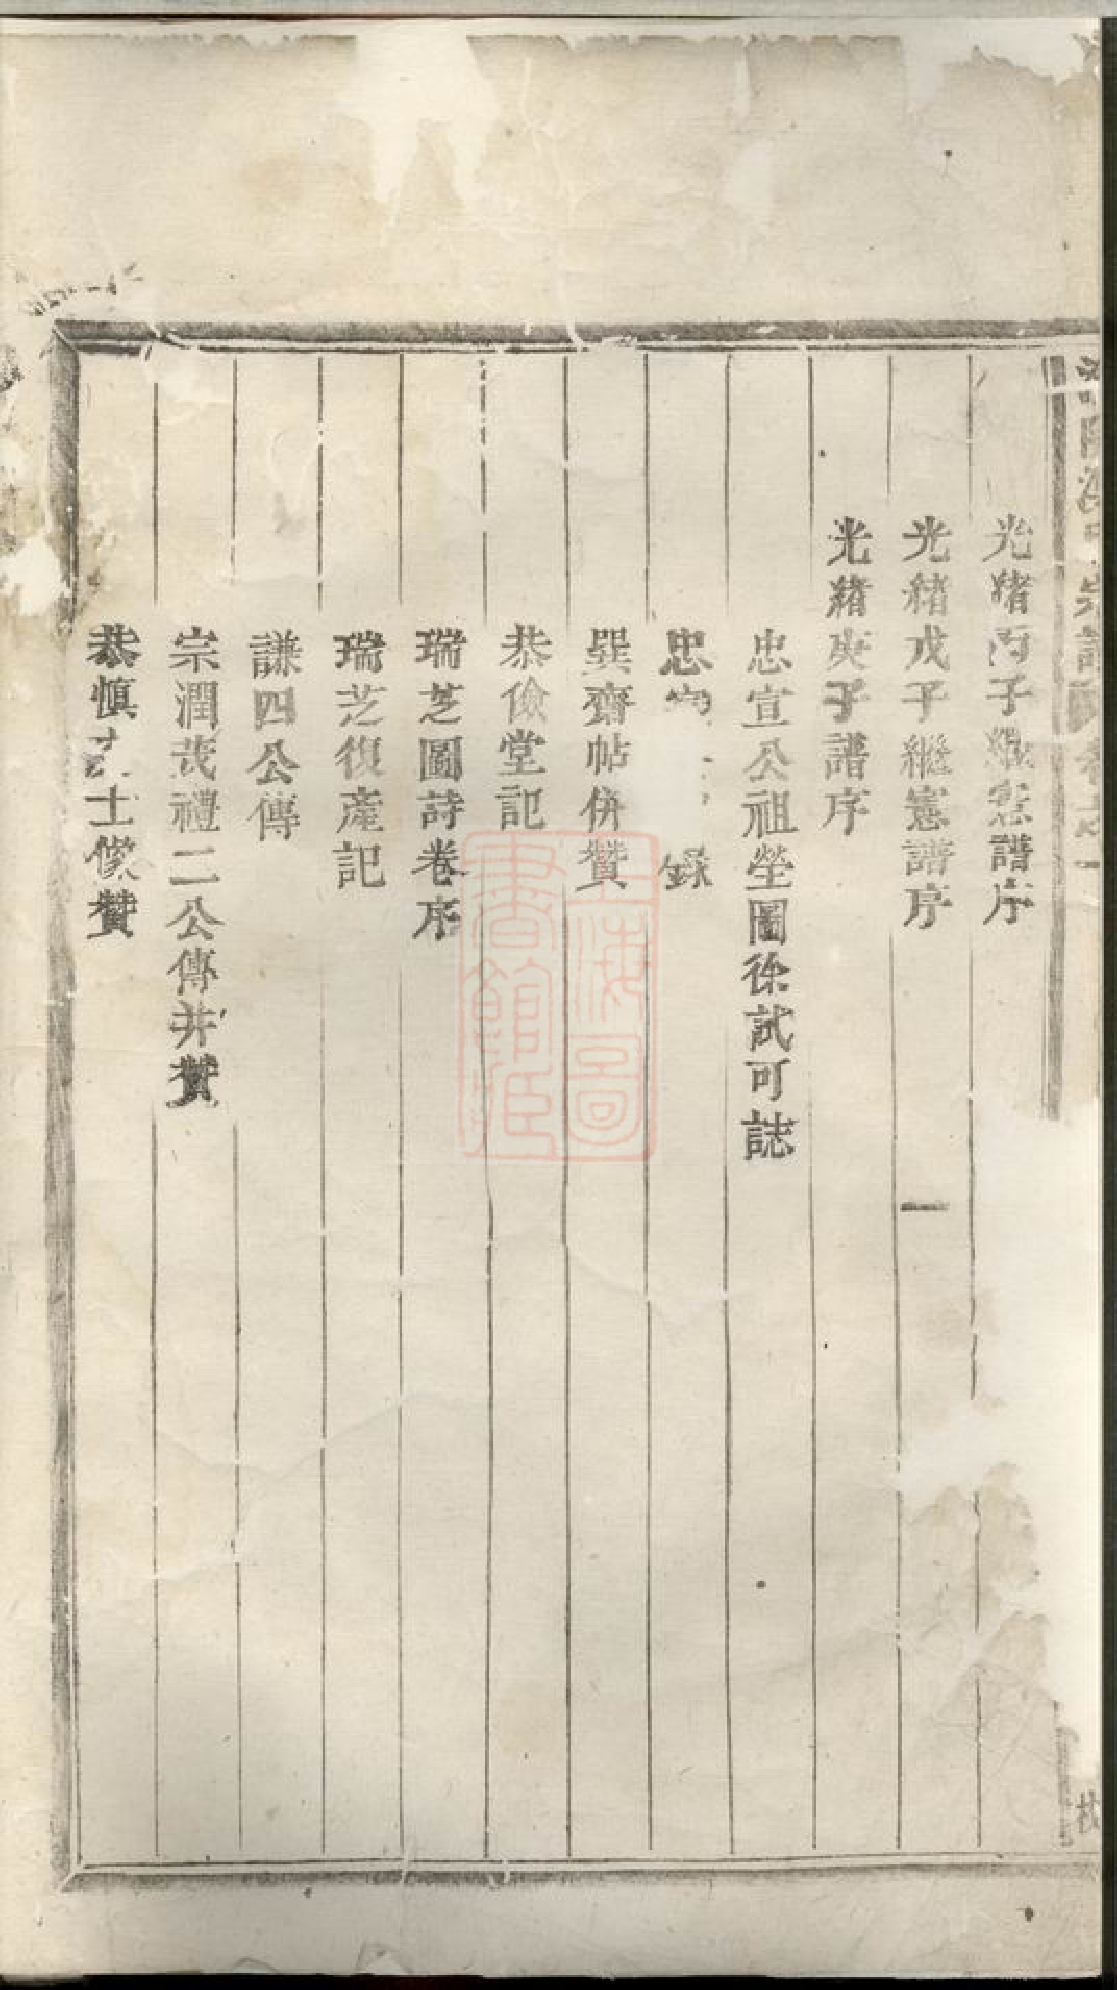 光緒丙子繼憲譜序
光緒戊子繼憲譜序一
光緒庚子譜序
忠宣公祖塋圖徐試可誌
忠 錄
巽齋帖併贊
恭儉堂記
瑞芝圖詩卷序
瑞芝復產記
謙四公傳
宗潤茂禮二公傳并贊
恭慎 士像贊
上海圖書館藏